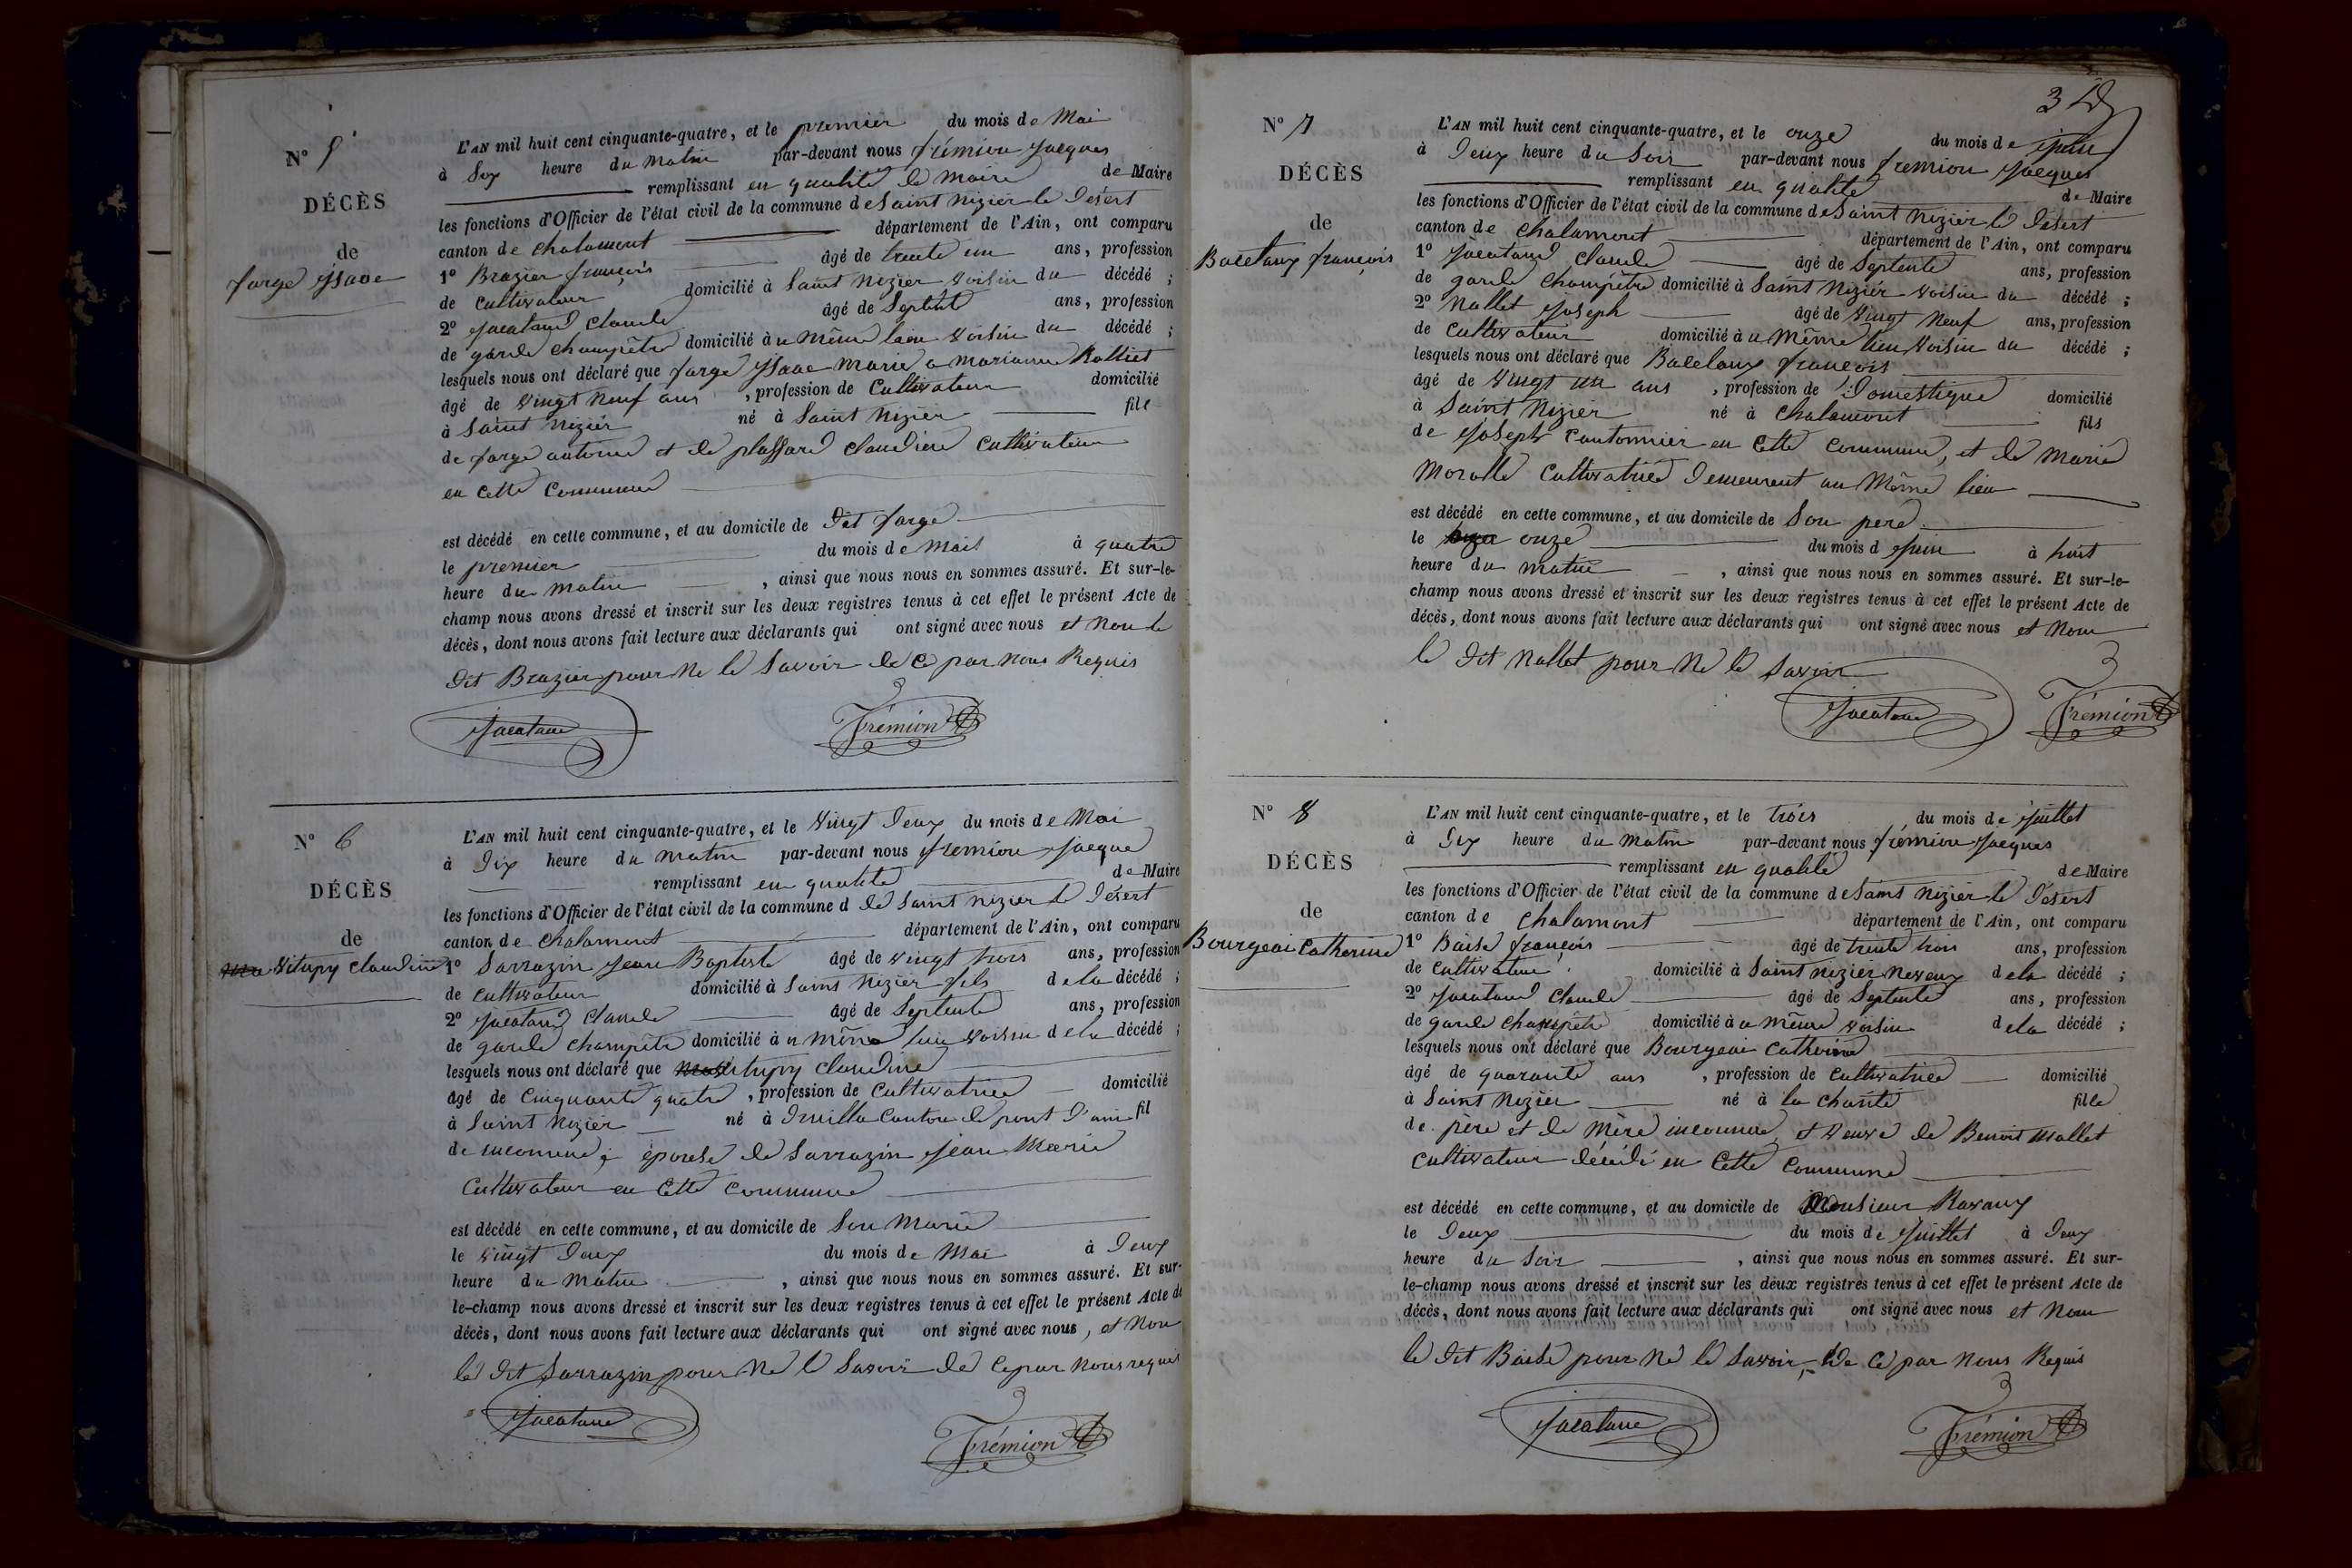 Nº 5
DÉCÈS
de
farge ysaae
L'AN mil huit cent cinquante-quatre, et le premier du mois de Mai
à Six heure du Matin par-devant nous frémion Jacques
remplissant en qualité de maire de Maire
les fonctions d'Officier de l'état civil de la commune de Saint Nizier le Désert
canton de chalamont département de l'Ain, ont comparu
1º Brazier françois âgé de trente un ans, profession
de Cultivateur domicilié à Saint Nizier voisin du décédé ;
2º Jacatand Claude âgé de Septente ans, profession
de garde champêtre domicilié à u même lieu voisin du décédé ;
lesquels nous ont déclaré que farge ysaae marié a marianne Rolliet
âgé de vingt neuf ans , profession de Cultivateur domicilié
à Saint Nizier né à Saint Nizier fils
de farge antoine et de plassard Claudine Cultivateur
en Cette Commune
est décédé en cette commune, et au domicile de dit farge
le premier du mois de Mais à quatre
heure du matin , ainsi que nous nous en sommes assuré. Et sur-le-
champ nous avons dressé et inscrit sur les deux registres tenus à cet effet le présent Acte de
décès, dont nous avons fait lecture aux déclarants qui ont signé avec nous et Non le
dit Brazier pour Ne le Savoir de Ce par nous Requis
Jacatand Frémion
Nº 6
DÉCÈS
de
Vitupy Claudine
L'AN mil huit cent cinquante-quatre, et le vingt Deux du mois de Mai
à Dix heure du matin par-devant nous fremion Jacque
remplissant en qualité de Maire
les fonctions d'Officier de l'état civil de la commune d de Saint Nizier le Désert
canton de Chalamont département de l'Ain, ont comparu
1º Sarrazin Jean Baptiste âgé de vingt trois ans, profession
de Cultivateur domicilié à Saint Nizier fils de la décédé ;
2º Jacatand Claude âgé de Septente ans, profession
de garde champêtre domicilié à u même lieu voisin de la décédé ;
lesquels nous ont déclaré que Vitupy Claudine
âgé de Cinquante quatre , profession de Cultivatrice domicilié
à Saint Nizier né à Druilla Canton de pont d'ain fil
de inconnue, épouse de Sarrazin Jean Marie
Cultivateur en Cette Commune
est décédé en cette commune, et au domicile de Son Marie
le vingt Deux du mois de Mai à Deux
heure du Matin , ainsi que nous nous en sommes assuré. Et sur-
le-champ nous avons dressé et inscrit sur les deux registres tenus à cet effet le présent Acte de
décès, dont nous avons fait lecture aux déclarants qui ont signé avec nous, et Non
le dit Sarrazin pour Ne l Savoir de Ce par Nous requis
Jacatand Frémion
3
Nº 7
DÉCÈS
de
Baletaux françois
L'AN mil huit cent cinquante-quatre, et le onze du mois de Juin
à Deux heure du Soir par-devant nous fremion Jacques
remplissant en qualité de Maire
les fonctions d'Officier de l'état civil de la commune de Saint Nizier le Désert
canton de Chalamont département de l'Ain, ont comparu
1º Jacatand Claude âgé de Septente ans, profession
de garde Champêtre domicilié à Saint Nizier voisin du décédé ;
2º Nallet Joseph âgé de vingt Neuf ans, profession
de Cultivateur domicilié à u même lieu voisin du décédé ;
lesquels nous ont déclaré que Baletaux françois
âgé de vingt un ans , profession de Domestique domicilié
à Saint Nizier né à Chalamont fils
de Joseph Cantonnier en Cette Commune, et de Marie
Moralle Cultivatrice Demeurent au Même lieu
est décédé en cette commune, et au domicile de Son père
le onze du mois d Juin à huit
heure du matin , ainsi que nous nous en sommes assuré. Et sur-le-
champ nous avons dressé et inscrit sur les deux registres tenus à cet effet le présent Acte de
décès, dont nous avons fait lecture aux déclarants qui ont signé avec nous et Non
le dit Nallet pour Ne le Savoir
Jacatand Frémion
Nº 8
DÉCÈS
de
Bourgeai Catherine
L'AN mil huit cent cinquante-quatre, et le trois du mois de Juillet
à Dix heure du Matin par-devant nous frémion Jacques
remplissant en qualité de Maire
les fonctions d'Officier de l'état civil de la commune de Saint Nizier le Désert
canton de Chalamont département de l'Ain, ont comparu
1º Baise françois âgé de trente trois ans, profession
de Cultivateur domicilié à Saint Nizier Neveux de la décédé ;
2º Jacatand Claude âgé de Septente ans, profession
de garde Champêtre domicilié à u même voisin de la décédé ;
lesquels nous ont déclaré que Bourgeai Catherine
âgé de quarante ans , profession de Cultivatrice domicilié
à Saint Nizier né à la Charité fille
de père et de Mère inconnue, et veuve de Benoit Mallet
Cultivateur décédé en Cette Commune
est décédé en cette commune, et au domicile de Monsieur Ravaux
le Deux du mois de Juillet à Deux
heure du Soir , ainsi que nous nous en sommes assuré. Et sur-
le-champ nous avons dressé et inscrit sur les deux registres tenus à cet effet le présent Acte de
décès, dont nous avons fait lecture aux déclarants qui ont signé avec nous et Non
le dit Baise pour Ne le Savoir, de Ce par Nous Requis
Jacatand Frémion